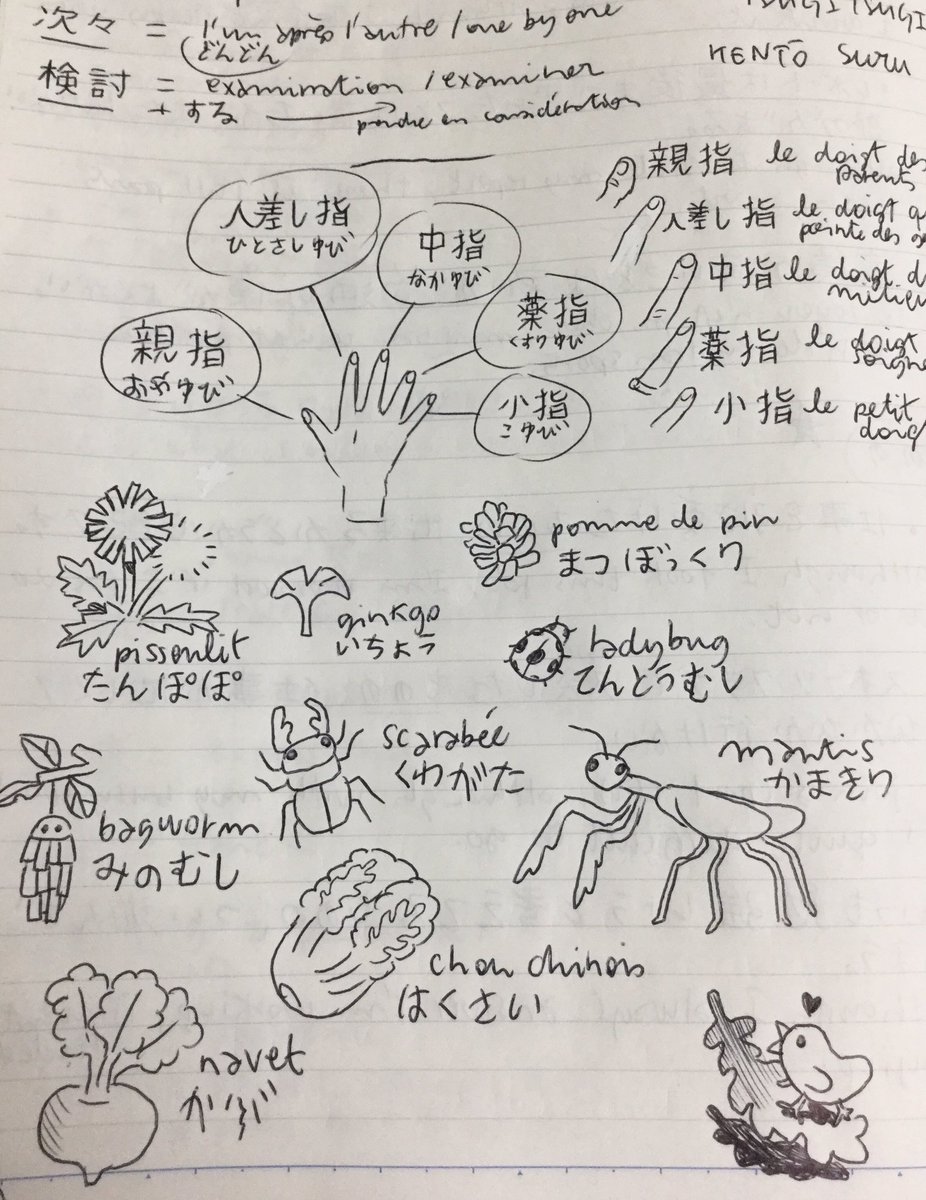 次々 = l'un après l'autre / one by one
どんどん
検討 = examination / examiner
+ する → prendre en considération
TSUGI TSUGI
KENTŌ suru
人差し指
ひとさしゆび
中指
なかゆび
薬指
くすりゆび
親指
おやゆび
小指
こゆび
親指 le doigt des
parents
人差し指 le doigt q
pointe des g
中指 le doigt d
milieu
薬指 le doigt
soigne
小指 le petit
doig
pissenlit
たんぽぽ
ginkgo
いちょう
pomme de pin
まつぼっくり
ladybug
てんとうむし
scarabée
くわがた
mantis
かまきり
bagworm
みのむし
chou chinois
はくさい
navet
かぶ